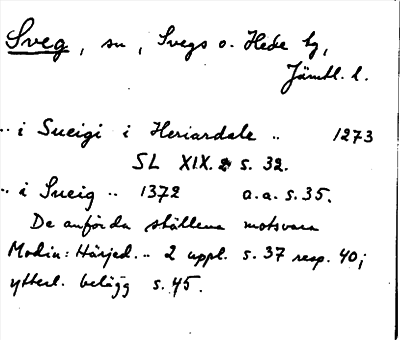 Sveg, sn, Svegs o. Hede hg,
Jämtl. l.
.. i Sueigi i Heriardale .. 1273
SL XIX. 2 s. 32.
.. i Sueig .. 1372 a.a. s. 35.
De anförda ställena motsvara
Modin: Härjed. .. 2 uppl. s. 37 resp. 40;
ytterl. belägg s. 45.